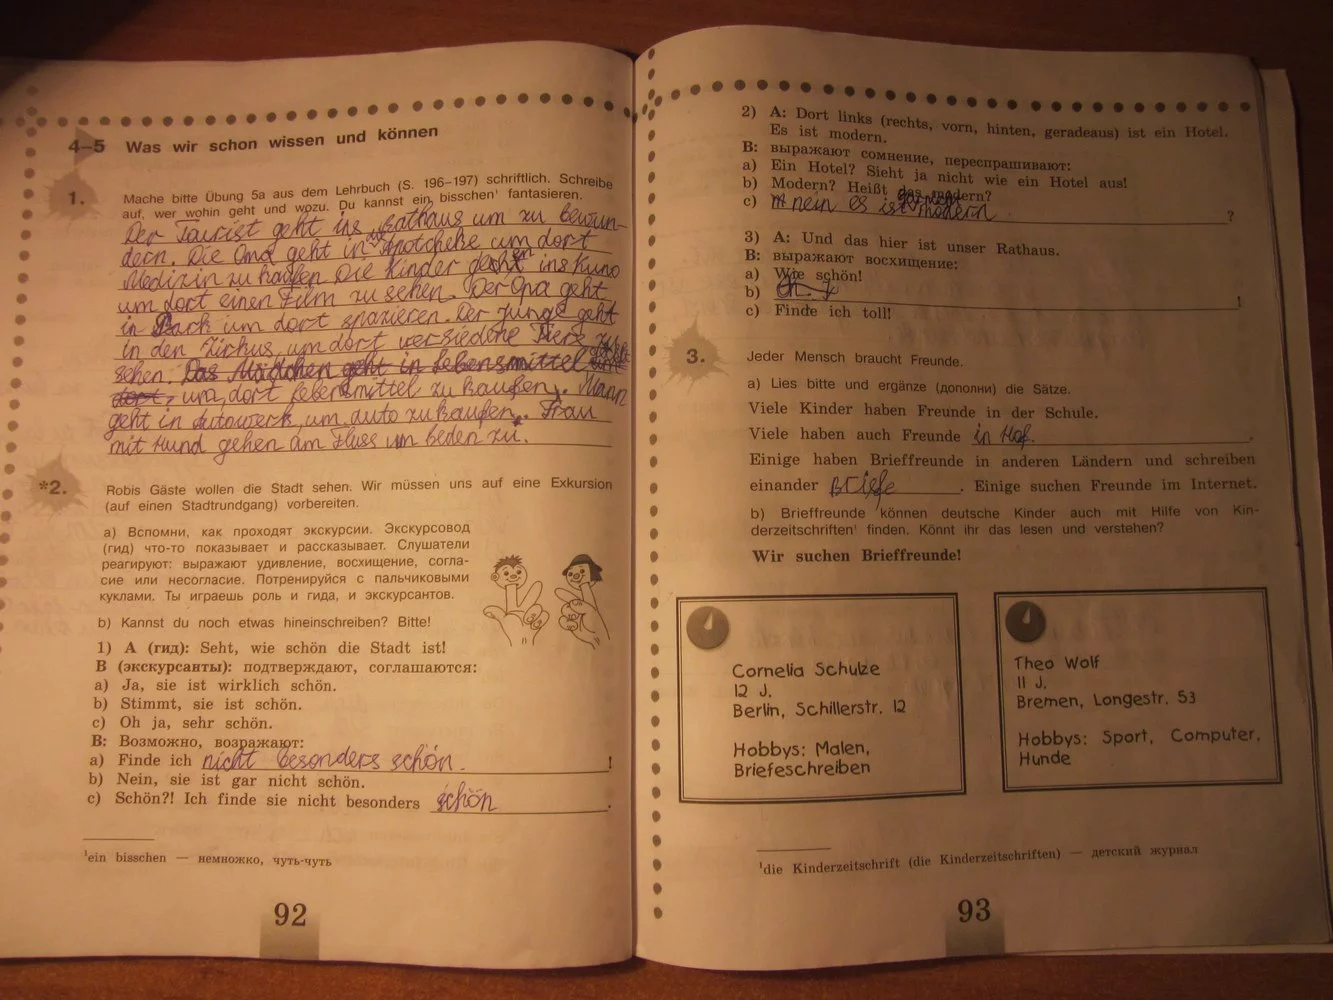 4–5 Was wir schon wissen und können
1. Mache bitte Übung 5a aus dem Lehrbuch (S. 196–197) schriftlich. Schreibe
auf, wer wohin geht und wozu. Du kannst ein bisschen¹ fantasieren.
Der Tourist geht ins Rathaus um zu bewun-
dern. Die Oma geht in Apotheke um dort
Medizin zu kaufen Die Kinder gehen ins Kino
um dort einen Film zu sehen. Der Opa geht
in Park um dort spazieren. Der Junge geht
in den Zirkus, um dort versiedene Tiere zu
sehen. Das Mädchen geht in lebensmittel
dort, um dort lebensmittel zu kaufen. Mann
geht in Autowerk, um auto zu kaufen. Frau
mit Hund gehen am Fluss um beden zu.
*2. Robis Gäste wollen die Stadt sehen. Wir müssen uns auf eine Exkursion
(auf einen Stadtrundgang) vorbereiten.
a) Вспомни, как проходят экскурсии. Экскурсовод
(гид) что-то показывает и рассказывает. Слушатели
реагируют: выражают удивление, восхищение, согла-
сие или несогласие. Потренируйся с пальчиковыми
куклами. Ты играешь роль и гида, и экскурсантов.
b) Kannst du noch etwas hineinschreiben? Bitte!
1) A (гид): Seht, wie schön die Stadt ist!
B (экскурсанты): подтверждают, соглашаются:
a) Ja, sie ist wirklich schön.
b) Stimmt, sie ist schön.
c) Oh ja, sehr schön.
B: Возможно, возражают:
a) Finde ich nicht besonders schön. !
b) Nein, sie ist gar nicht schön.
c) Schön?! Ich finde sie nicht besonders schön .
¹ein bisschen — немножко, чуть-чуть
92
2) A: Dort links (rechts, vorn, hinten, geradeaus) ist ein Hotel.
Es ist modern.
B: выражают сомнение, переспрашивают:
a) Ein Hotel? Sieht ja nicht wie ein Hotel aus!
b) Modern? Heißt das modern?
c) nein es ist modern ?
3) A: Und das hier ist unser Rathaus.
B: выражают восхищение:
a) Wie schön!
b) !
c) Finde ich toll!
3. Jeder Mensch braucht Freunde.
a) Lies bitte und ergänze (дополни) die Sätze.
Viele Kinder haben Freunde in der Schule.
Viele haben auch Freunde in Hof. .
Einige haben Brieffreunde in anderen Ländern und schreiben
einander Briefe . Einige suchen Freunde im Internet.
b) Brieffreunde können deutsche Kinder auch mit Hilfe von Kin-
derzeitschriften¹ finden. Könnt ihr das lesen und verstehen?
Wir suchen Brieffreunde!
Cornelia Schulze
12 J.
Berlin, Schillerstr. 12
Hobbys: Malen,
Briefeschreiben
Theo Wolf
11 J.
Bremen, Longestr. 53
Hobbys: Sport, Computer,
Hunde
¹die Kinderzeitschrift (die Kinderzeitschriften) — детский журнал
93